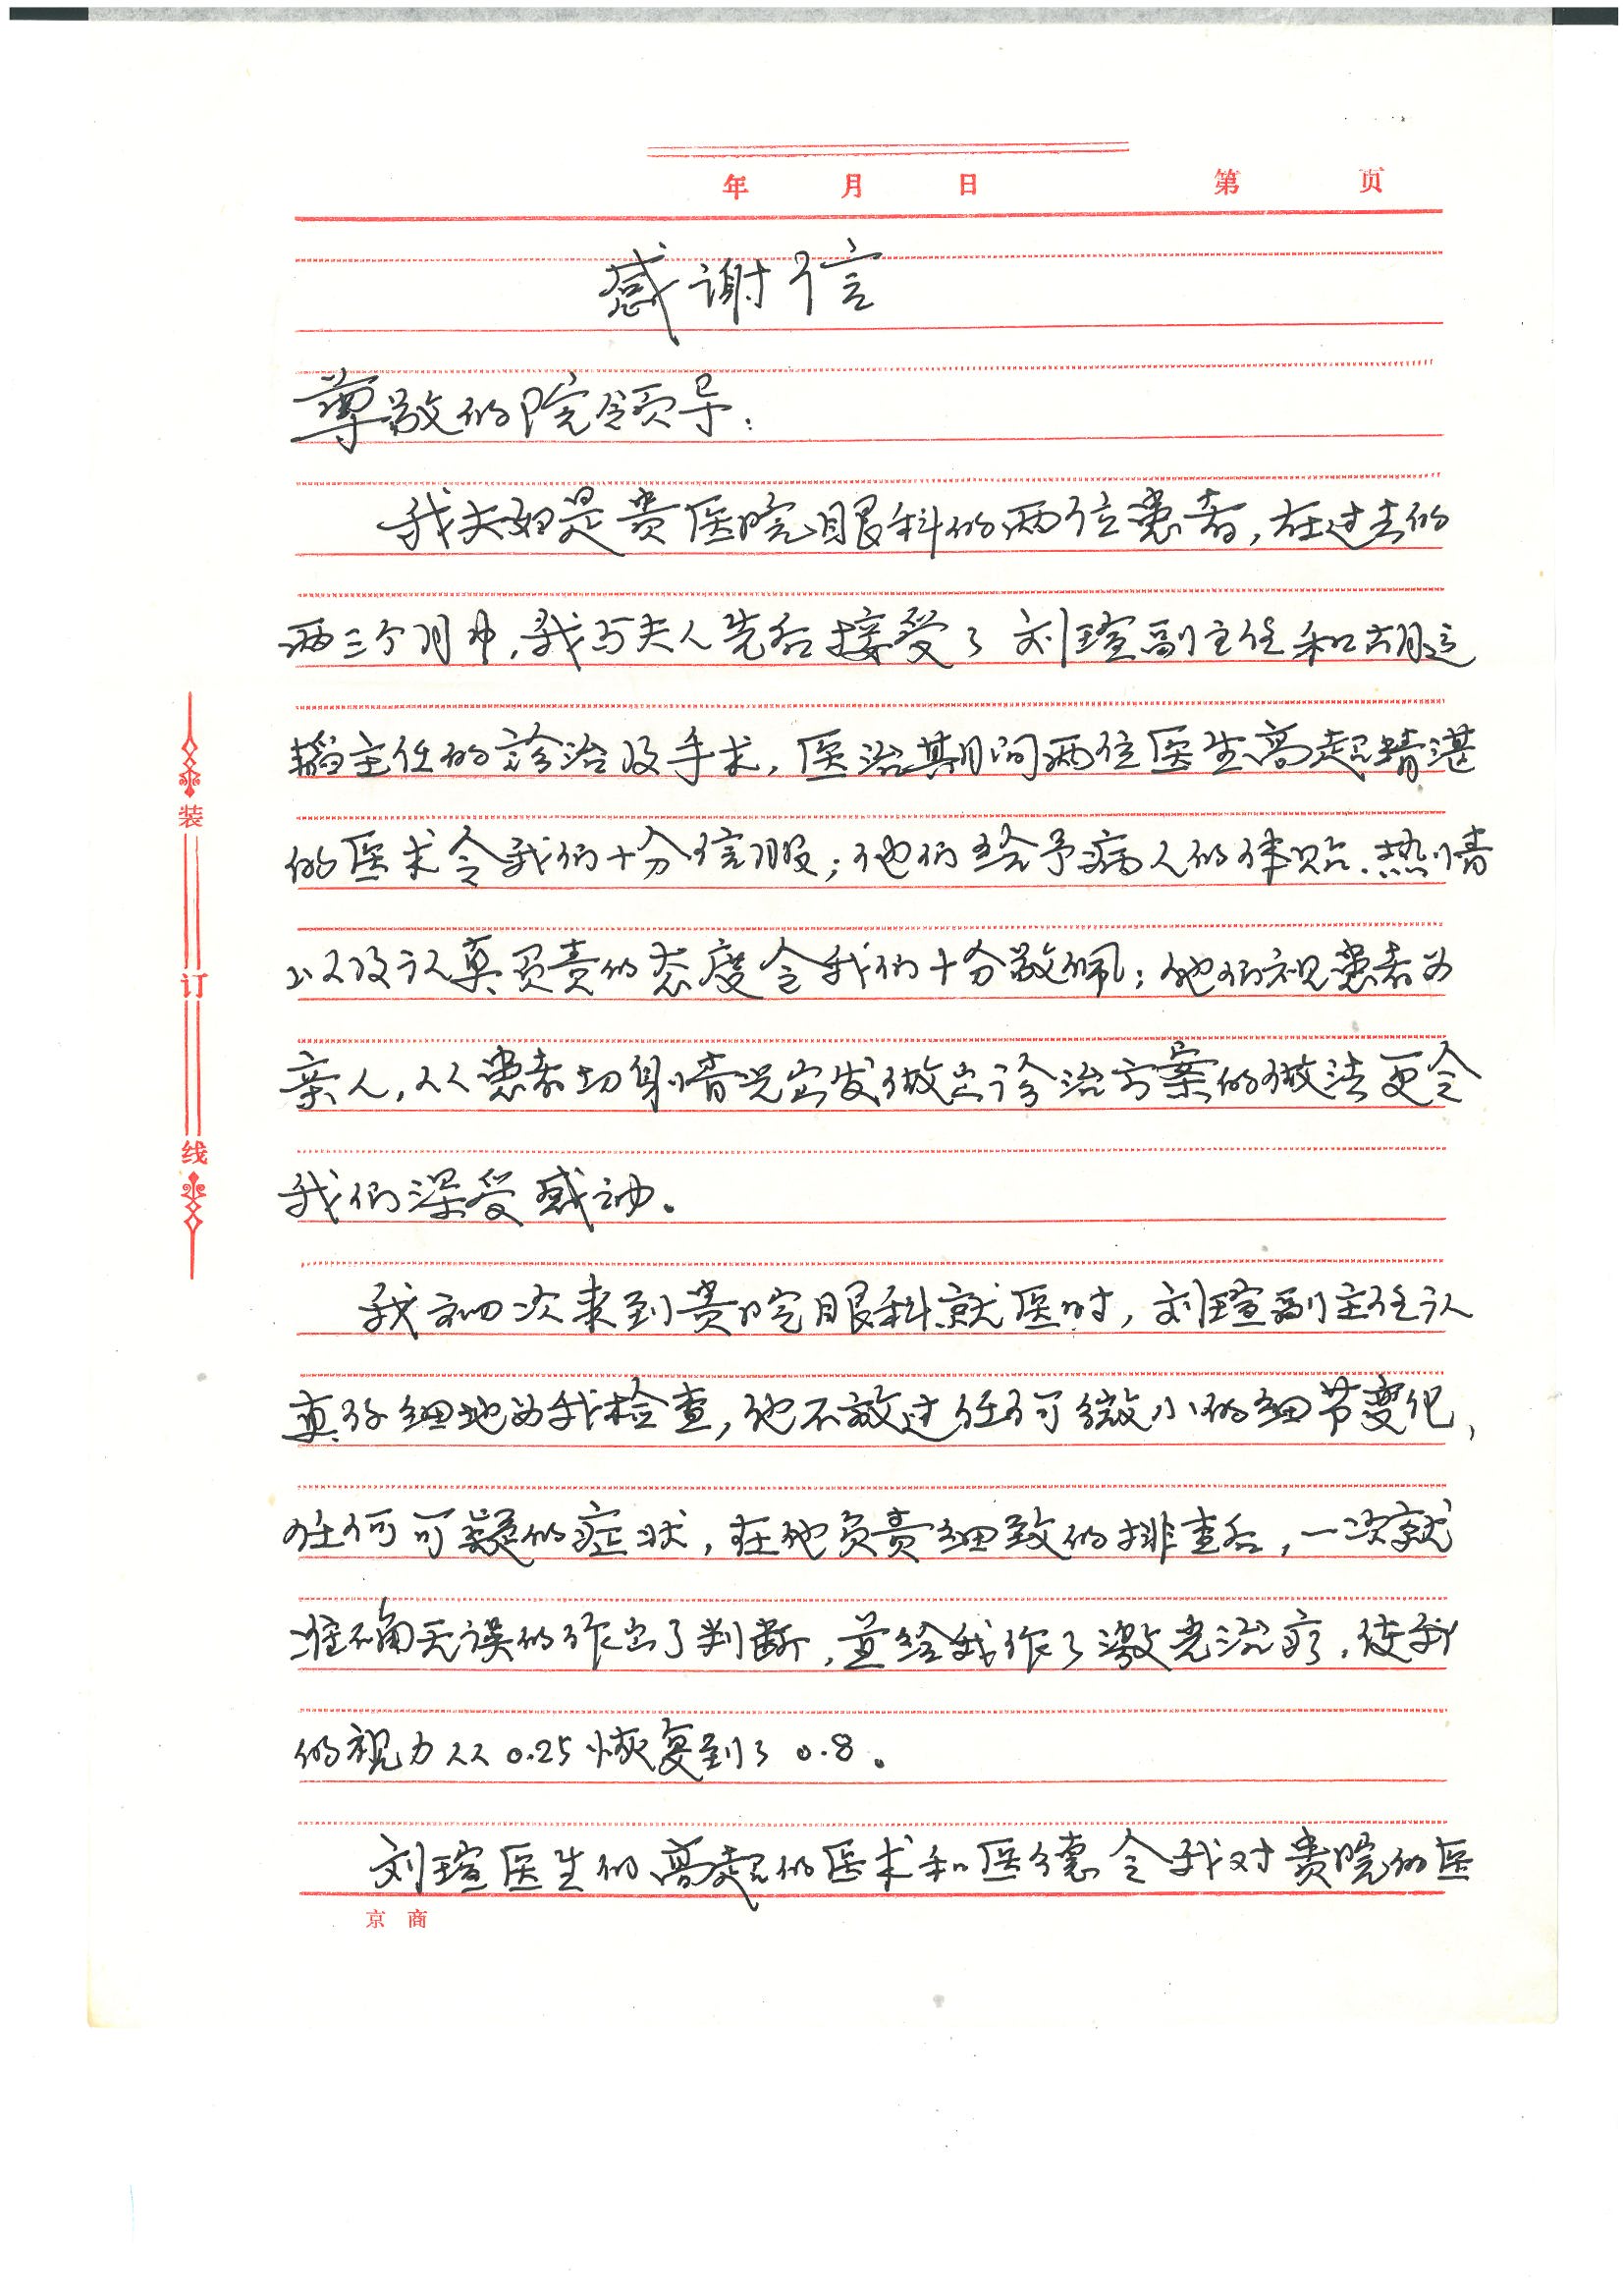 年 月 日 第 页
感谢信
尊敬的院领导:
我夫妇是贵医院眼科的两位患者,在过去的
两三个月中,我与夫人先后接受了刘瑄副主任和胡运
韬主任的诊治及手术,医治期间两位医生高超精湛
的医术令我们十分信服;他们给予病人的体贴、热情
以及认真负责的态度令我们十分敬佩;他们视患者为
亲人,从患者切身情况出发做出诊治方案的做法更令
我们深受感动。
我初次来到贵院眼科就医时,刘瑄副主任认
真仔细地为我检查,他不放过任何微小的细节变化,
任何可疑的症状,在他负责细致的排查后,一次就
准确无误的作出了判断,并给我作了激光治疗,使我
的视力从0.25恢复到了0.8。
刘瑄医生的高超的医术和医德令我对贵院的医
京 商
装
订
线